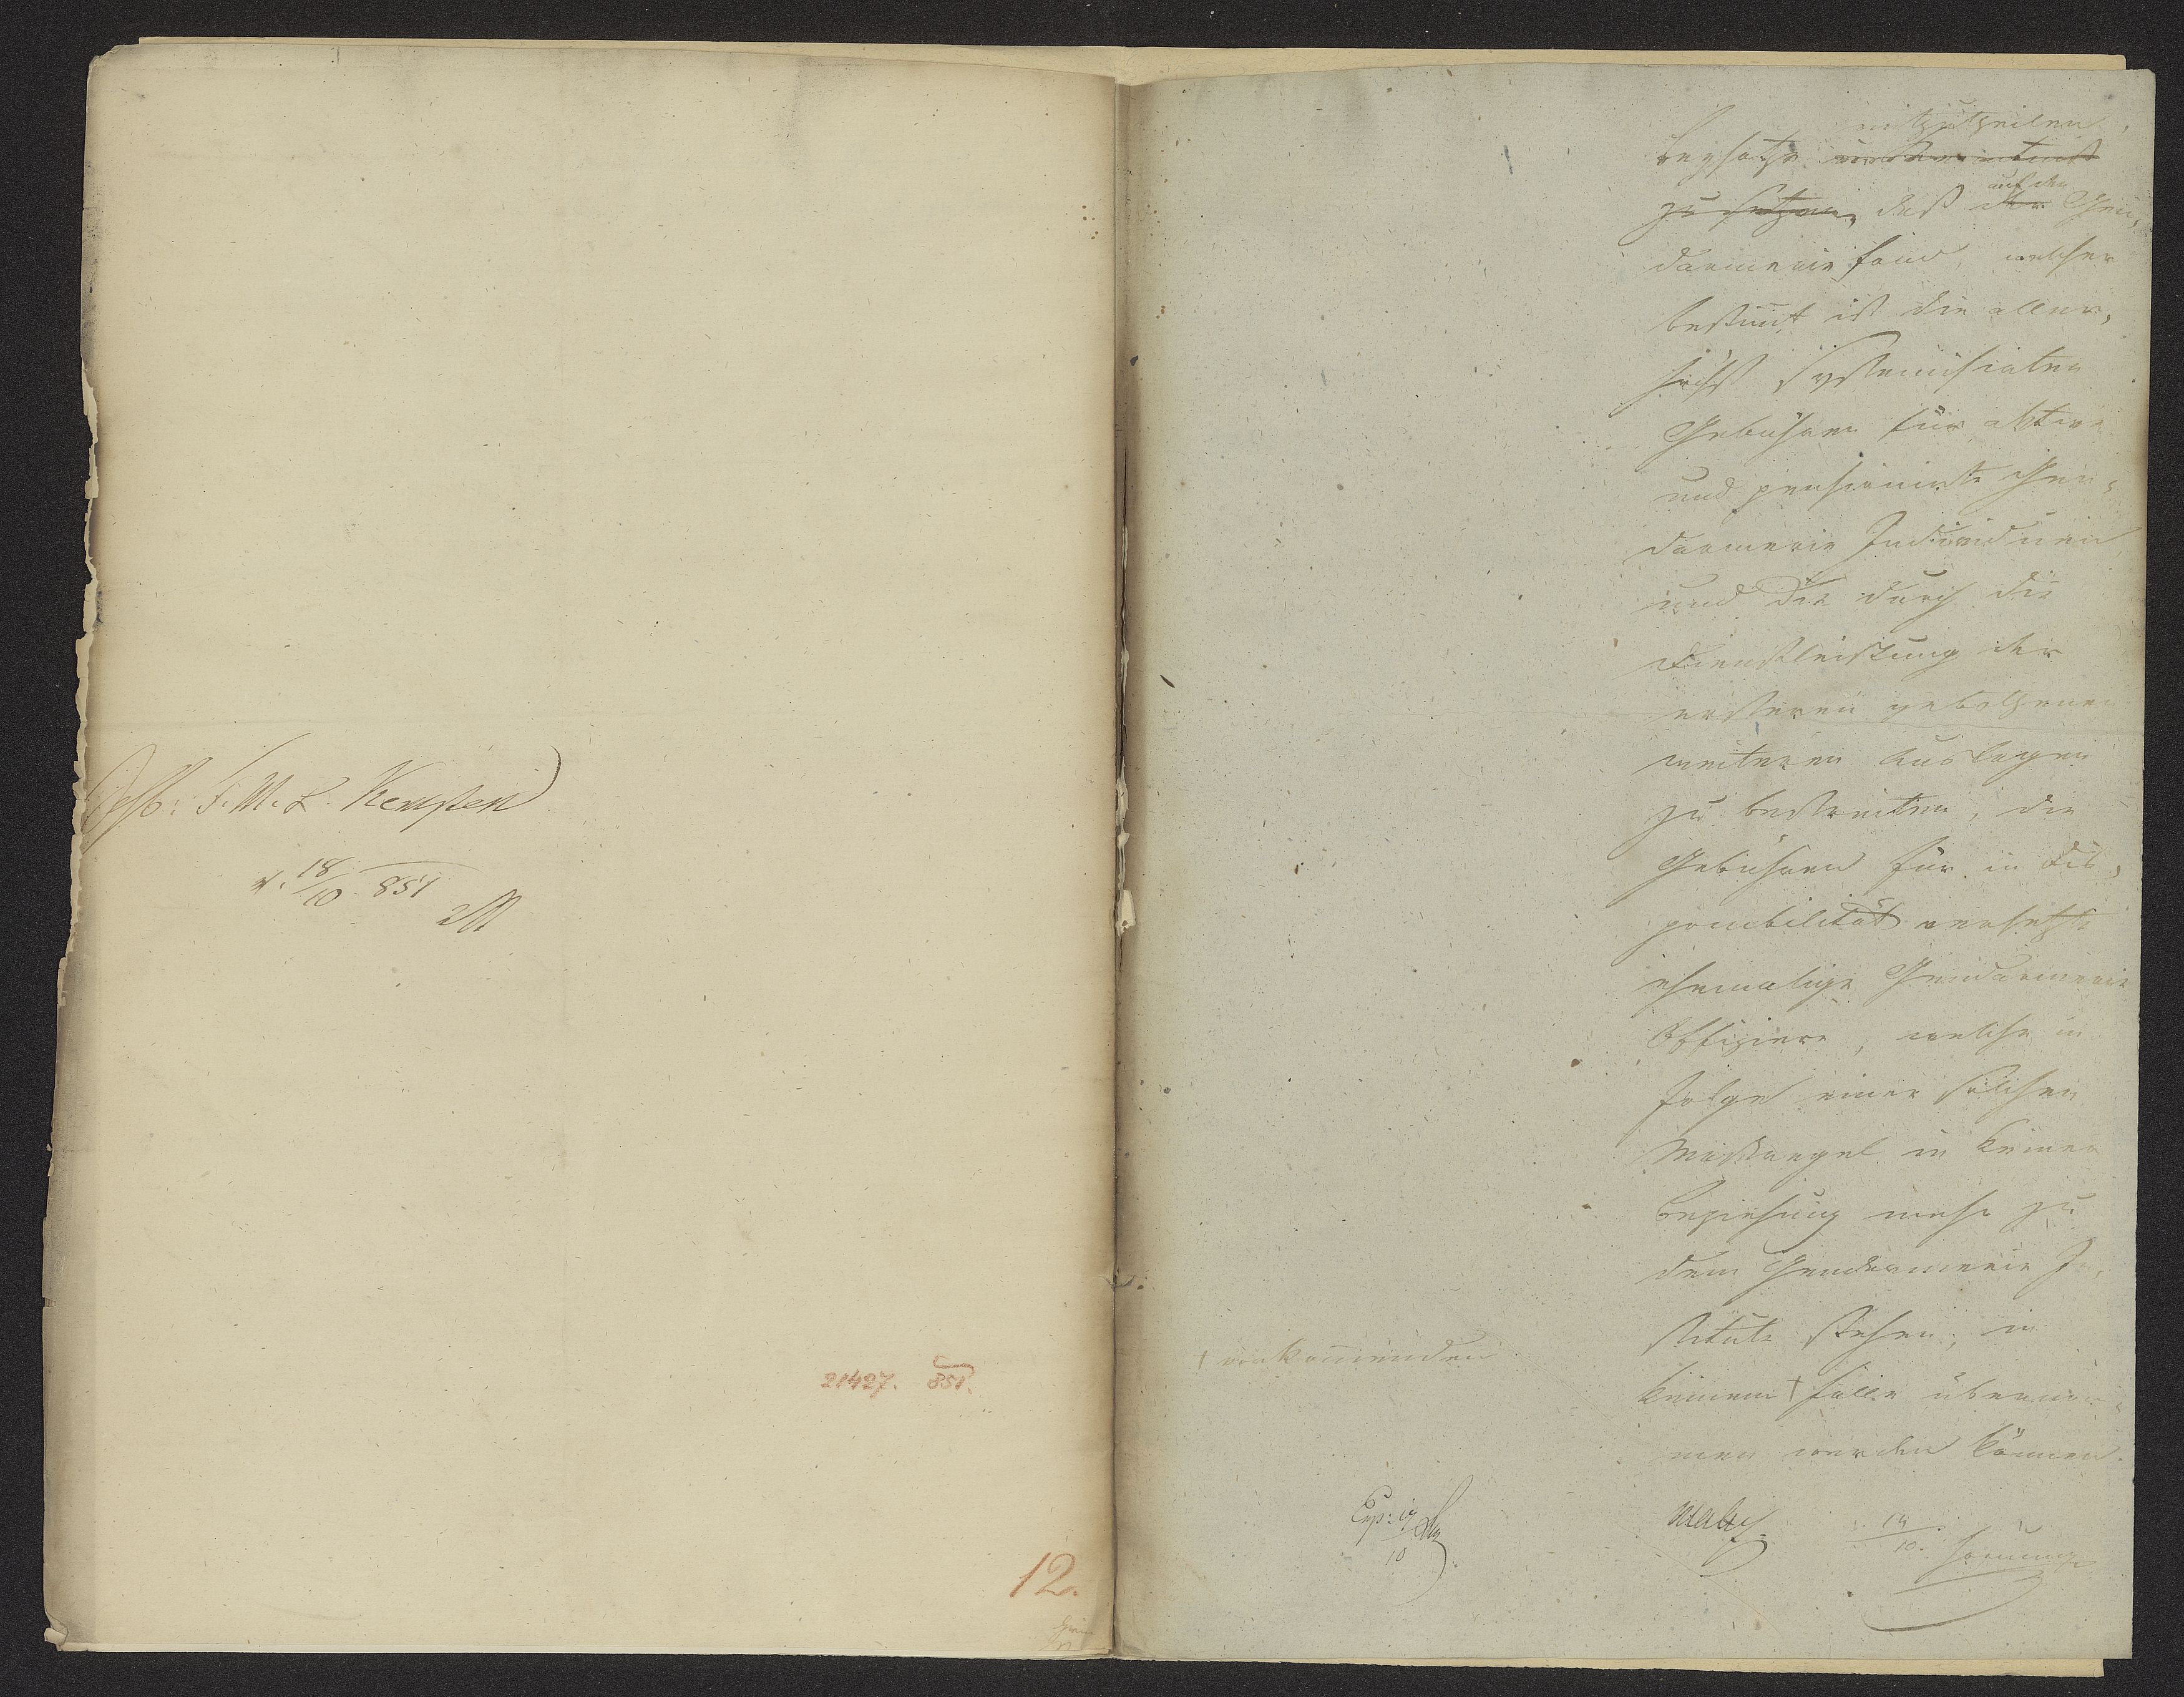 F. M. L. Kempen
18/10 851
21427. 851.
12.
mitzutheilen
Beysatze zur Kenntniß
zu setzen, daß auf den der Gen,
darmerie fond, welcher
bestimt ist die aller,
höchst systemisirten
Gebühren für active
und pensionirte Gen,
darmerie Individuen
und die durch die
Dienstleistung der
ersteren gebothenen
weiteren Auslagen
zu bestreiten, die
Gebühren für in Dis,
ponibilität versetzte
ehemalige Gendarmerie
Offiziere, welche in
Folge einer solchen
Maßregel in keiner
Beziehung mehr zu
dem Gendarmerie In,
stitute stehen, in
keinem † Falle übernom,
men werden können.
† vorkommenden
Exp: 19/10
14/10.